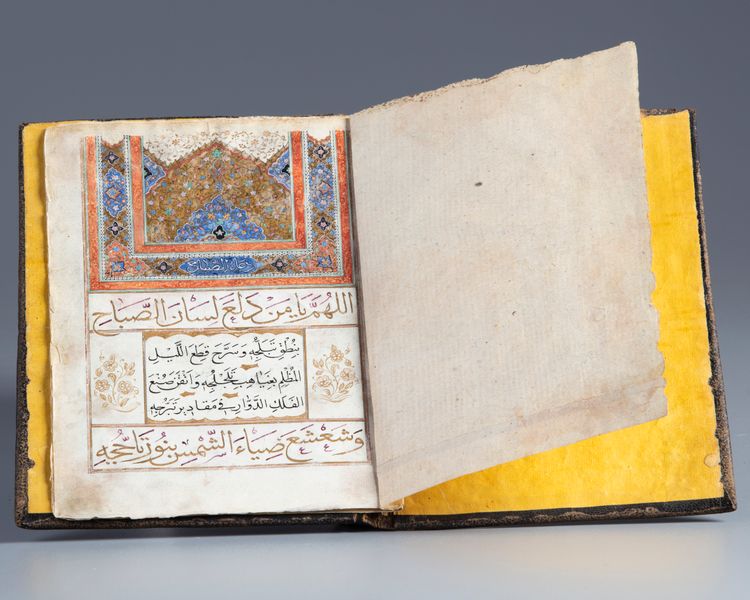 دعاء الصباح
اللهم يا من دلع لسان الصباح
بنطق تبلجه وسرح قطع الليل
المظلم بغياهب تلجلجه واتقن صنع
الفلك الدوار في مقادير تبرجه
وشعشع ضياء الشمس بنور تاججه